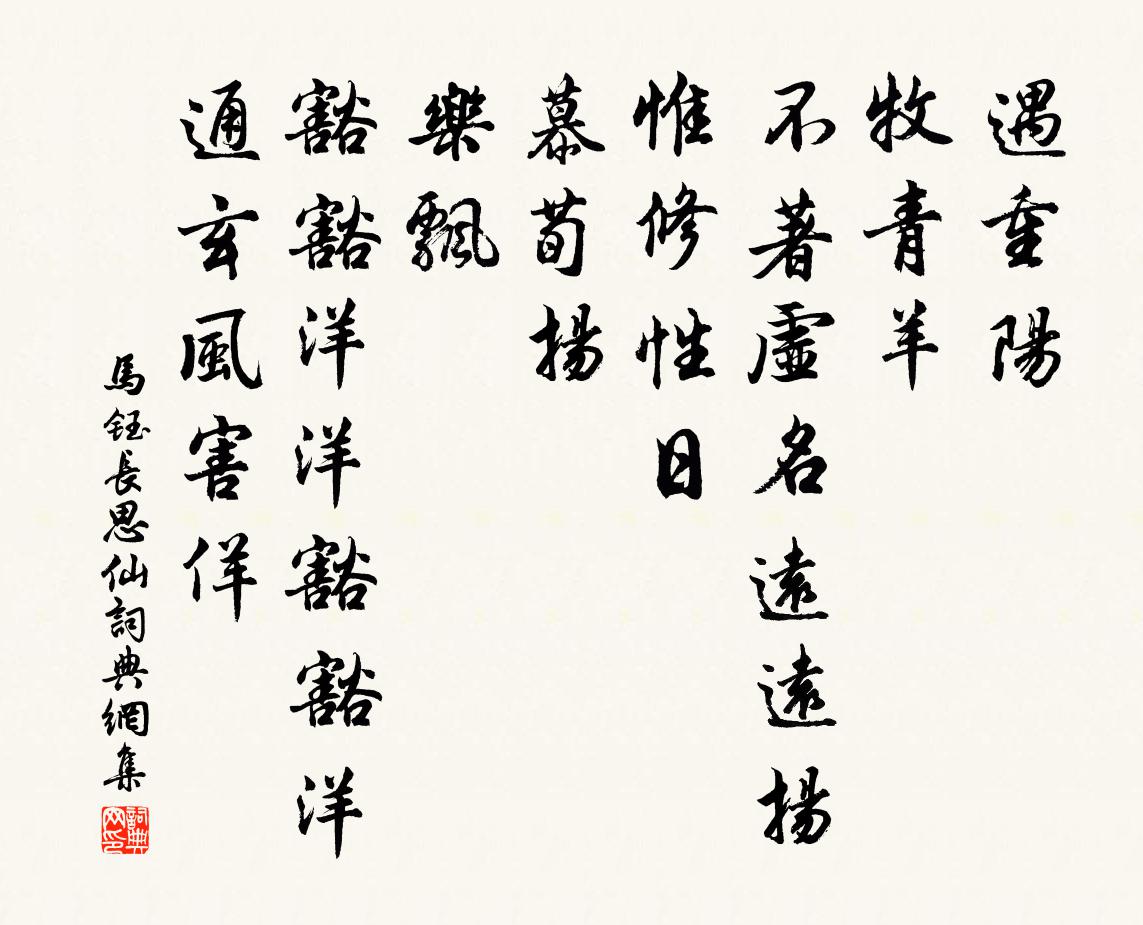 遇重陽
牧青羊
不著虛名遠遠揚
惟修性日
慕荀揚
樂飄
豁豁洋洋豁豁洋
通玄風害佯
馬鈺長思仙詞典網集
詞典网印